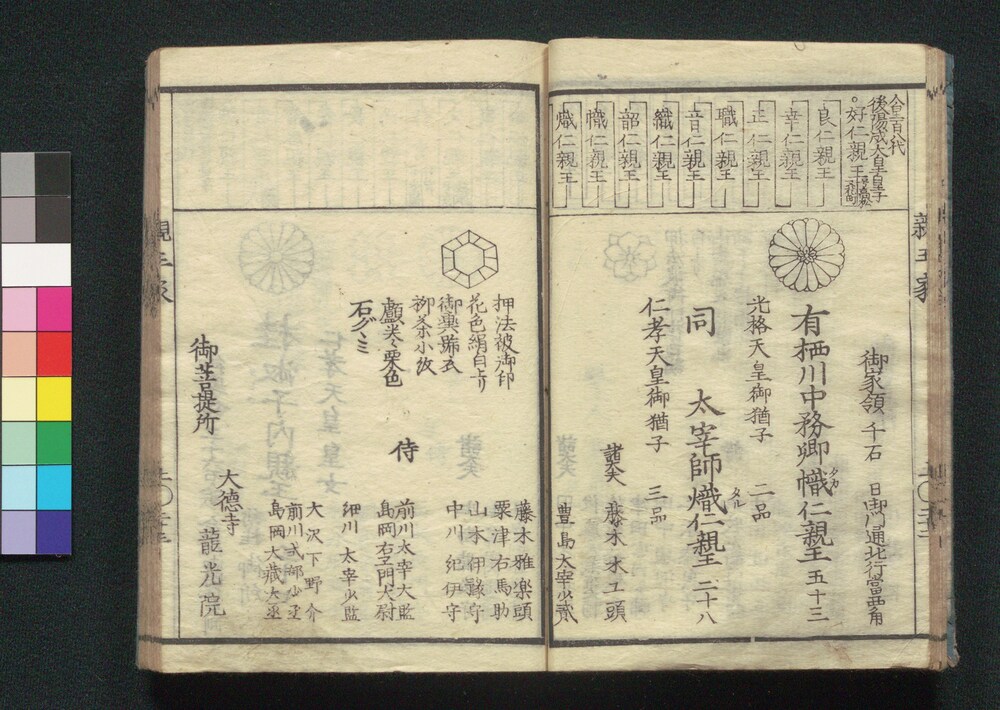 親王家
後陽成天皇皇子
好仁親王
良仁親王
幸仁親王
正仁親王
職仁親王
音仁親王
織仁親王
韶仁親王
幟仁親王
熾仁親王
御家領 千石
日御門通北行當西角
有栖川中務卿幟仁親王 五十三
タカ
光格天皇御猶子 二品
同 太宰師熾仁親王 二十八
タル
仁孝天皇御猶子 三品
諸大夫 藤木木工頭
豊島太宰少貳
押法被御印
花色絹白上り
御輿舁衣
柳茶小紋
石グミ
藤木雅楽頭
粟津右馬助
山本伊豫守
中川紀伊守
侍
前川太宰大監
島岡右衛門大尉
細川太宰少監
大沢下野介
前川式部少丞
島岡大藏大丞
御菩提所
大德寺 龍光院
親王家